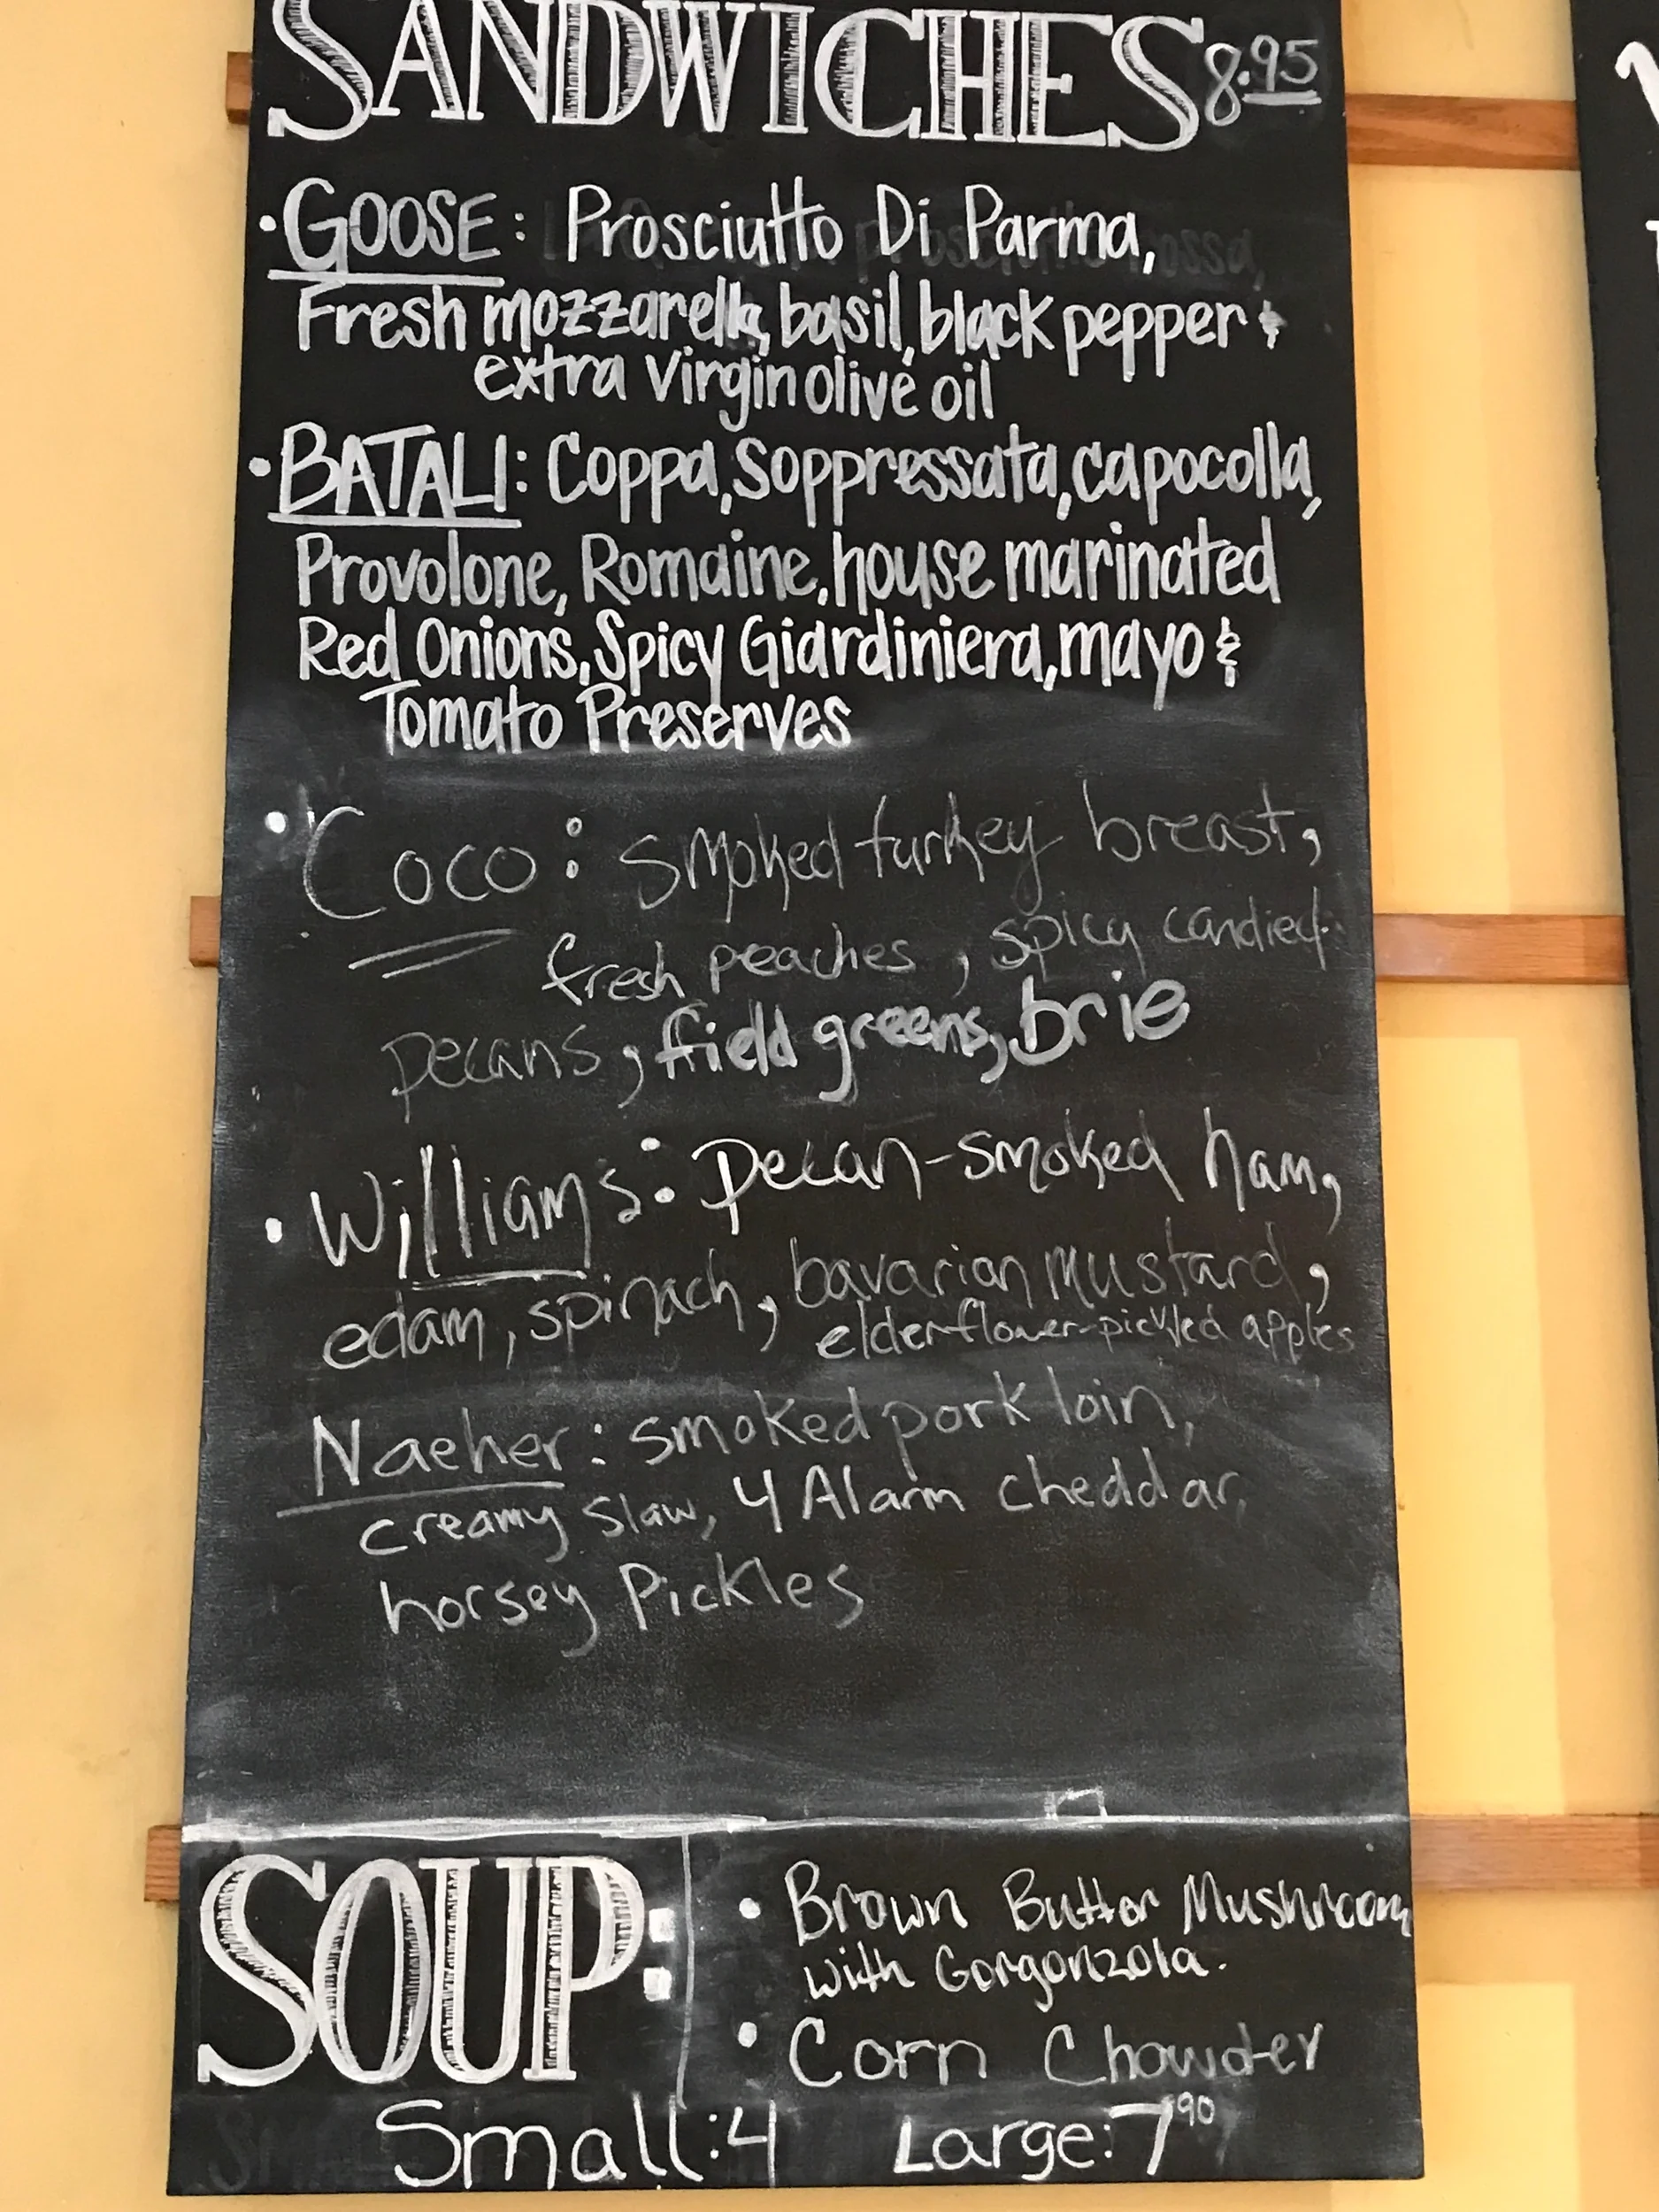 SANDWICHES 8.95
• GOOSE: Prosciutto Di Parma,
Fresh mozzarella, basil, black pepper &
extra Virgin olive oil
• BATALI: Coppa, Soppressata, capocolla,
Provolone, Romaine, house marinated
Red Onions, Spicy Giardiniera, mayo &
Tomato Preserves
• Coco: smoked turkey breast,
fresh peaches, spicy candied
pecans, field greens, brie
• Williams: Pecan-smoked ham,
edam, spinach, bavarian mustard,
elderflower-pickled apples
Naeher: smoked pork loin,
creamy slaw, 4 Alarm cheddar,
horsey Pickles
SOUP:
• Brown Butter Mushroom
with Gorgonzola.
• Corn Chowder
Small: 4 Large: 7.90